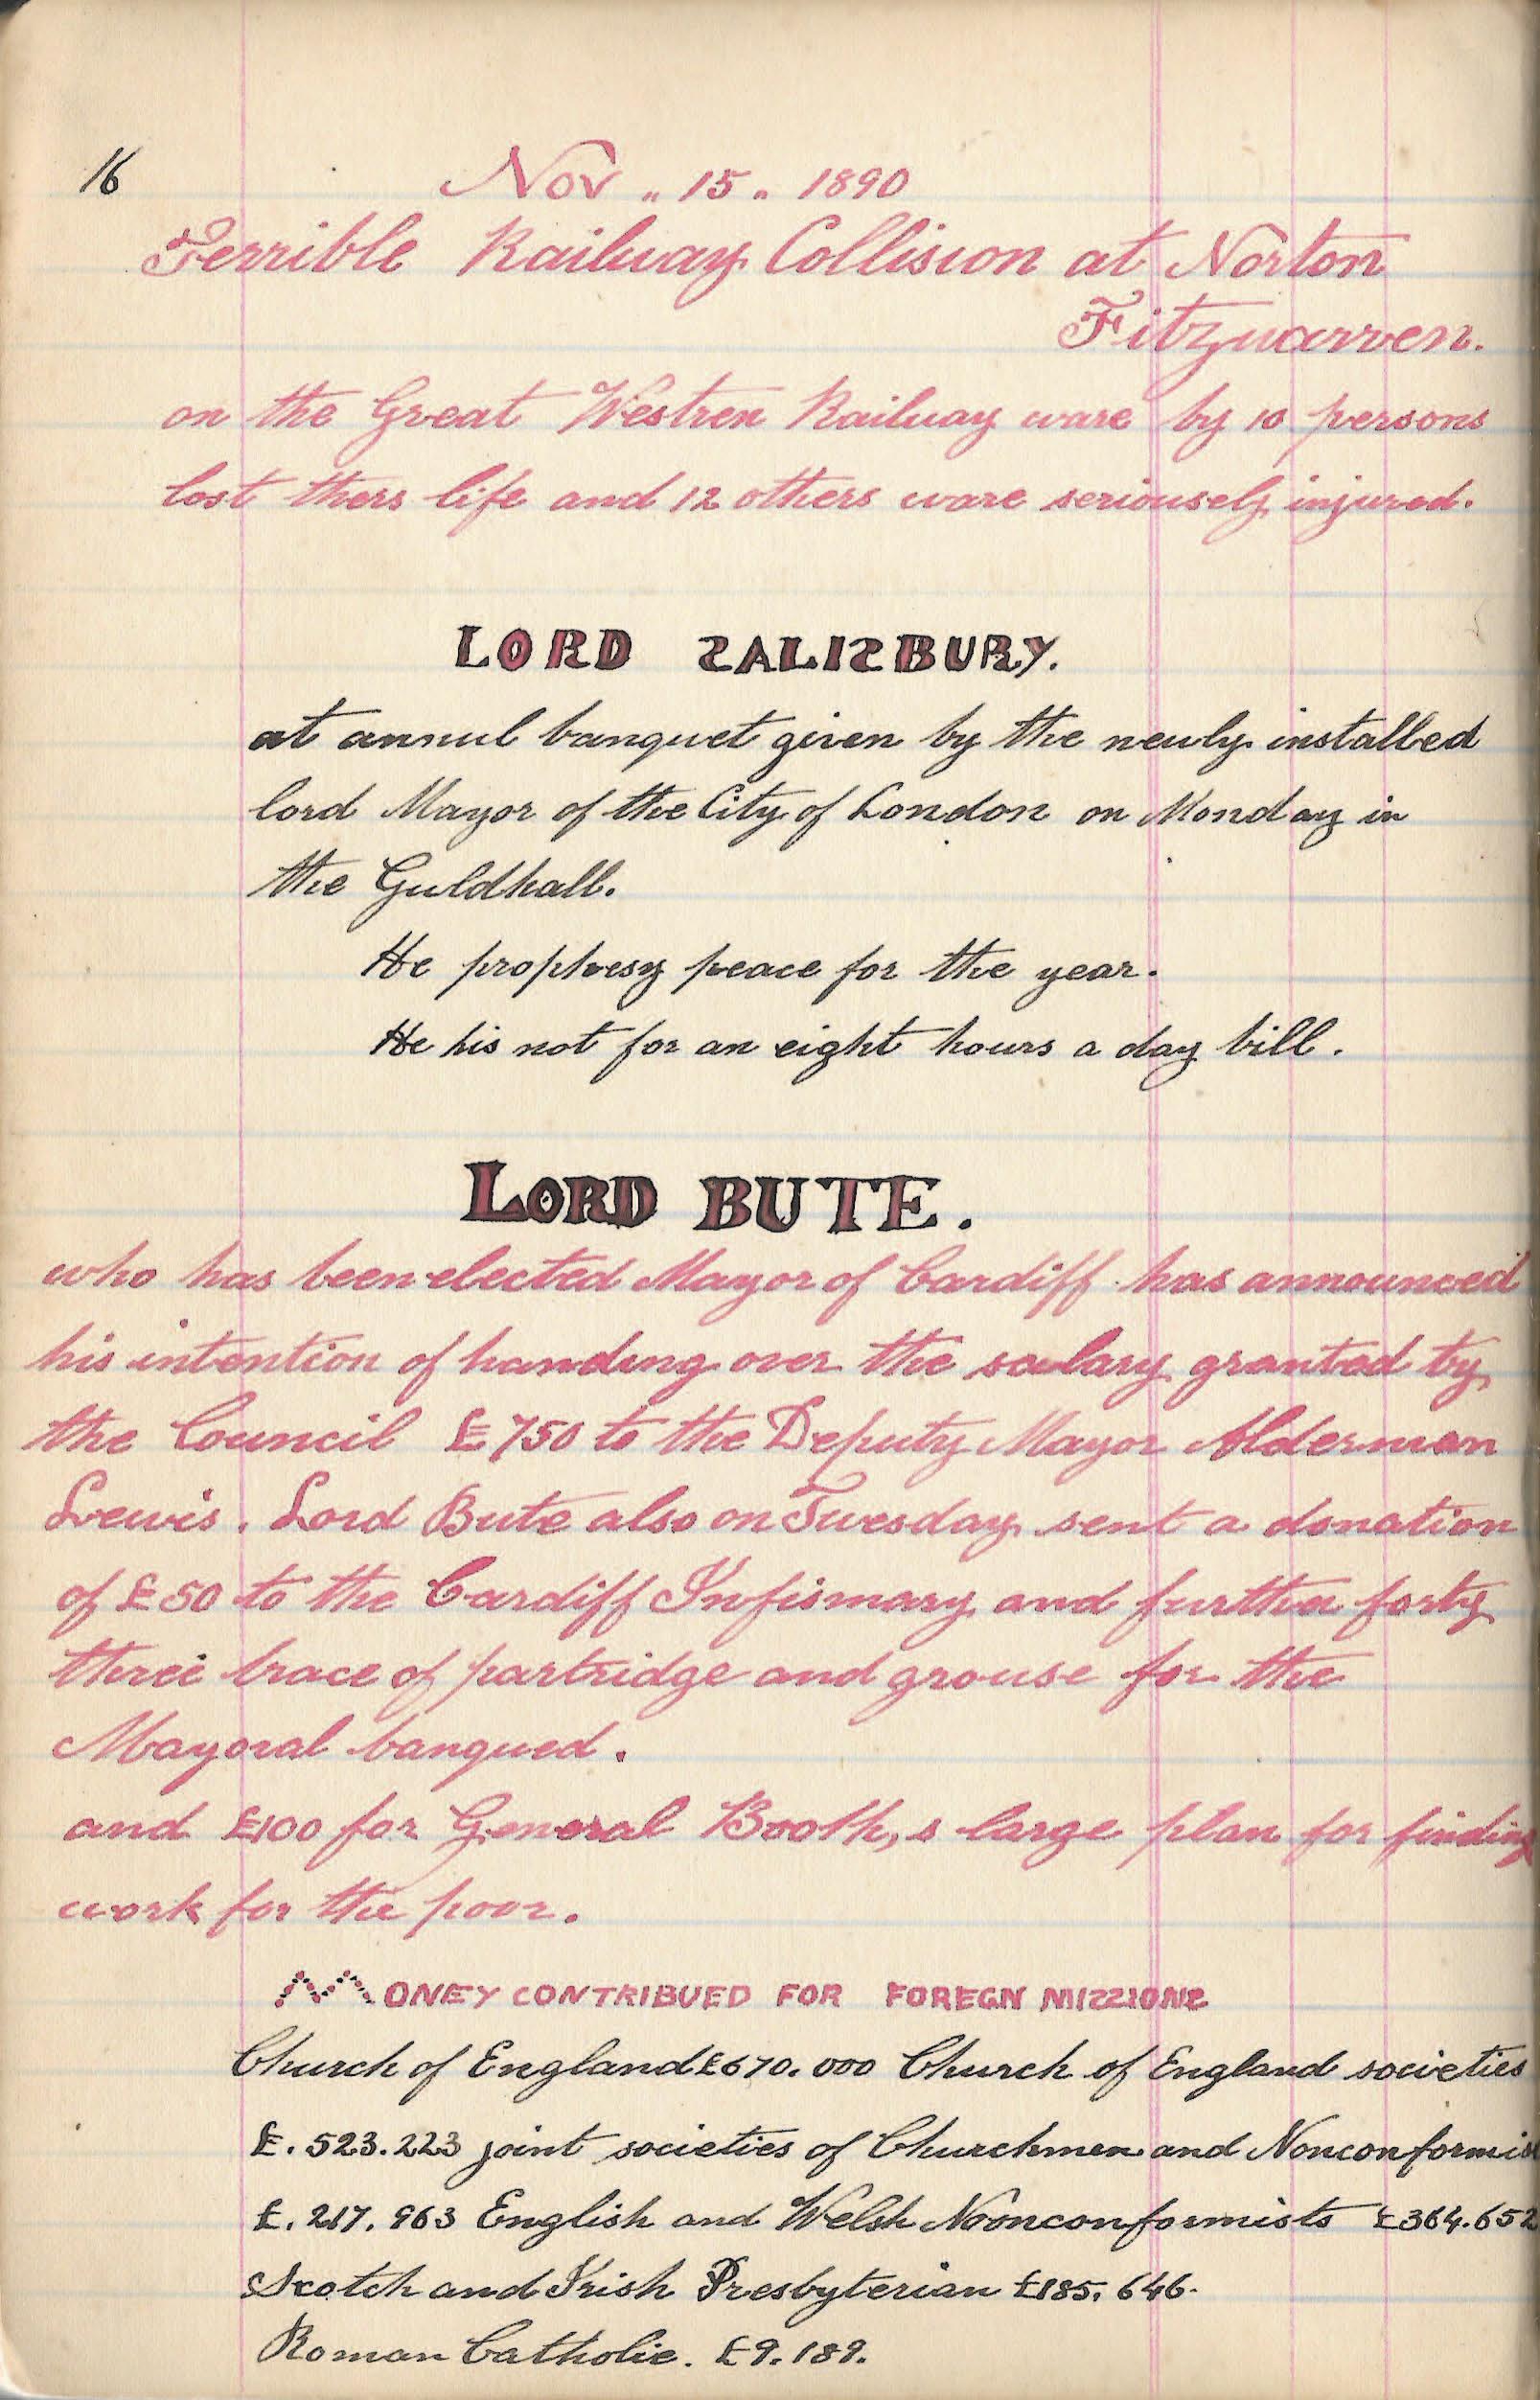 16
Nov „ 15 „ 1890
Terrible Railway Collision at Norton
Fitzwarren.
on the Great Westren Railway ware by 10 persons
lost thers life and 12 others ware seriousely injured.
LORD SALISBURY.
at annul banquet given by the newly installed
lord Mayor of the City of London on Monday in
the Guldhall.
He prophesy peace for the year.
He his not for an eight hours a day bill.
LORD BUTE.
who has been elected Mayor of Cardiff has announced
his intention of handing over the salary granted by
the Council £750 to the Deputy Mayor Alderman
Lewis. Lord Bute also on Tuesday sent a donation
of £50 to the Cardiff Infirmary and further forty
three brace of partridge and grouse for the
Mayoral banqued.
and £100 for General Booth,s large plan for finding
work for the poor.
MONEY CONTRIBUED FOR FOREGN MISSIONS
Church of England £670.000 Church of England societies
£.523.223 joint societies of Churchmen and Nonconformis
£.217.963 English and Welsh Noonconformists £364.652
Scotch and Irish Presbyterian £185.646.
Roman Catholic. £9.189.